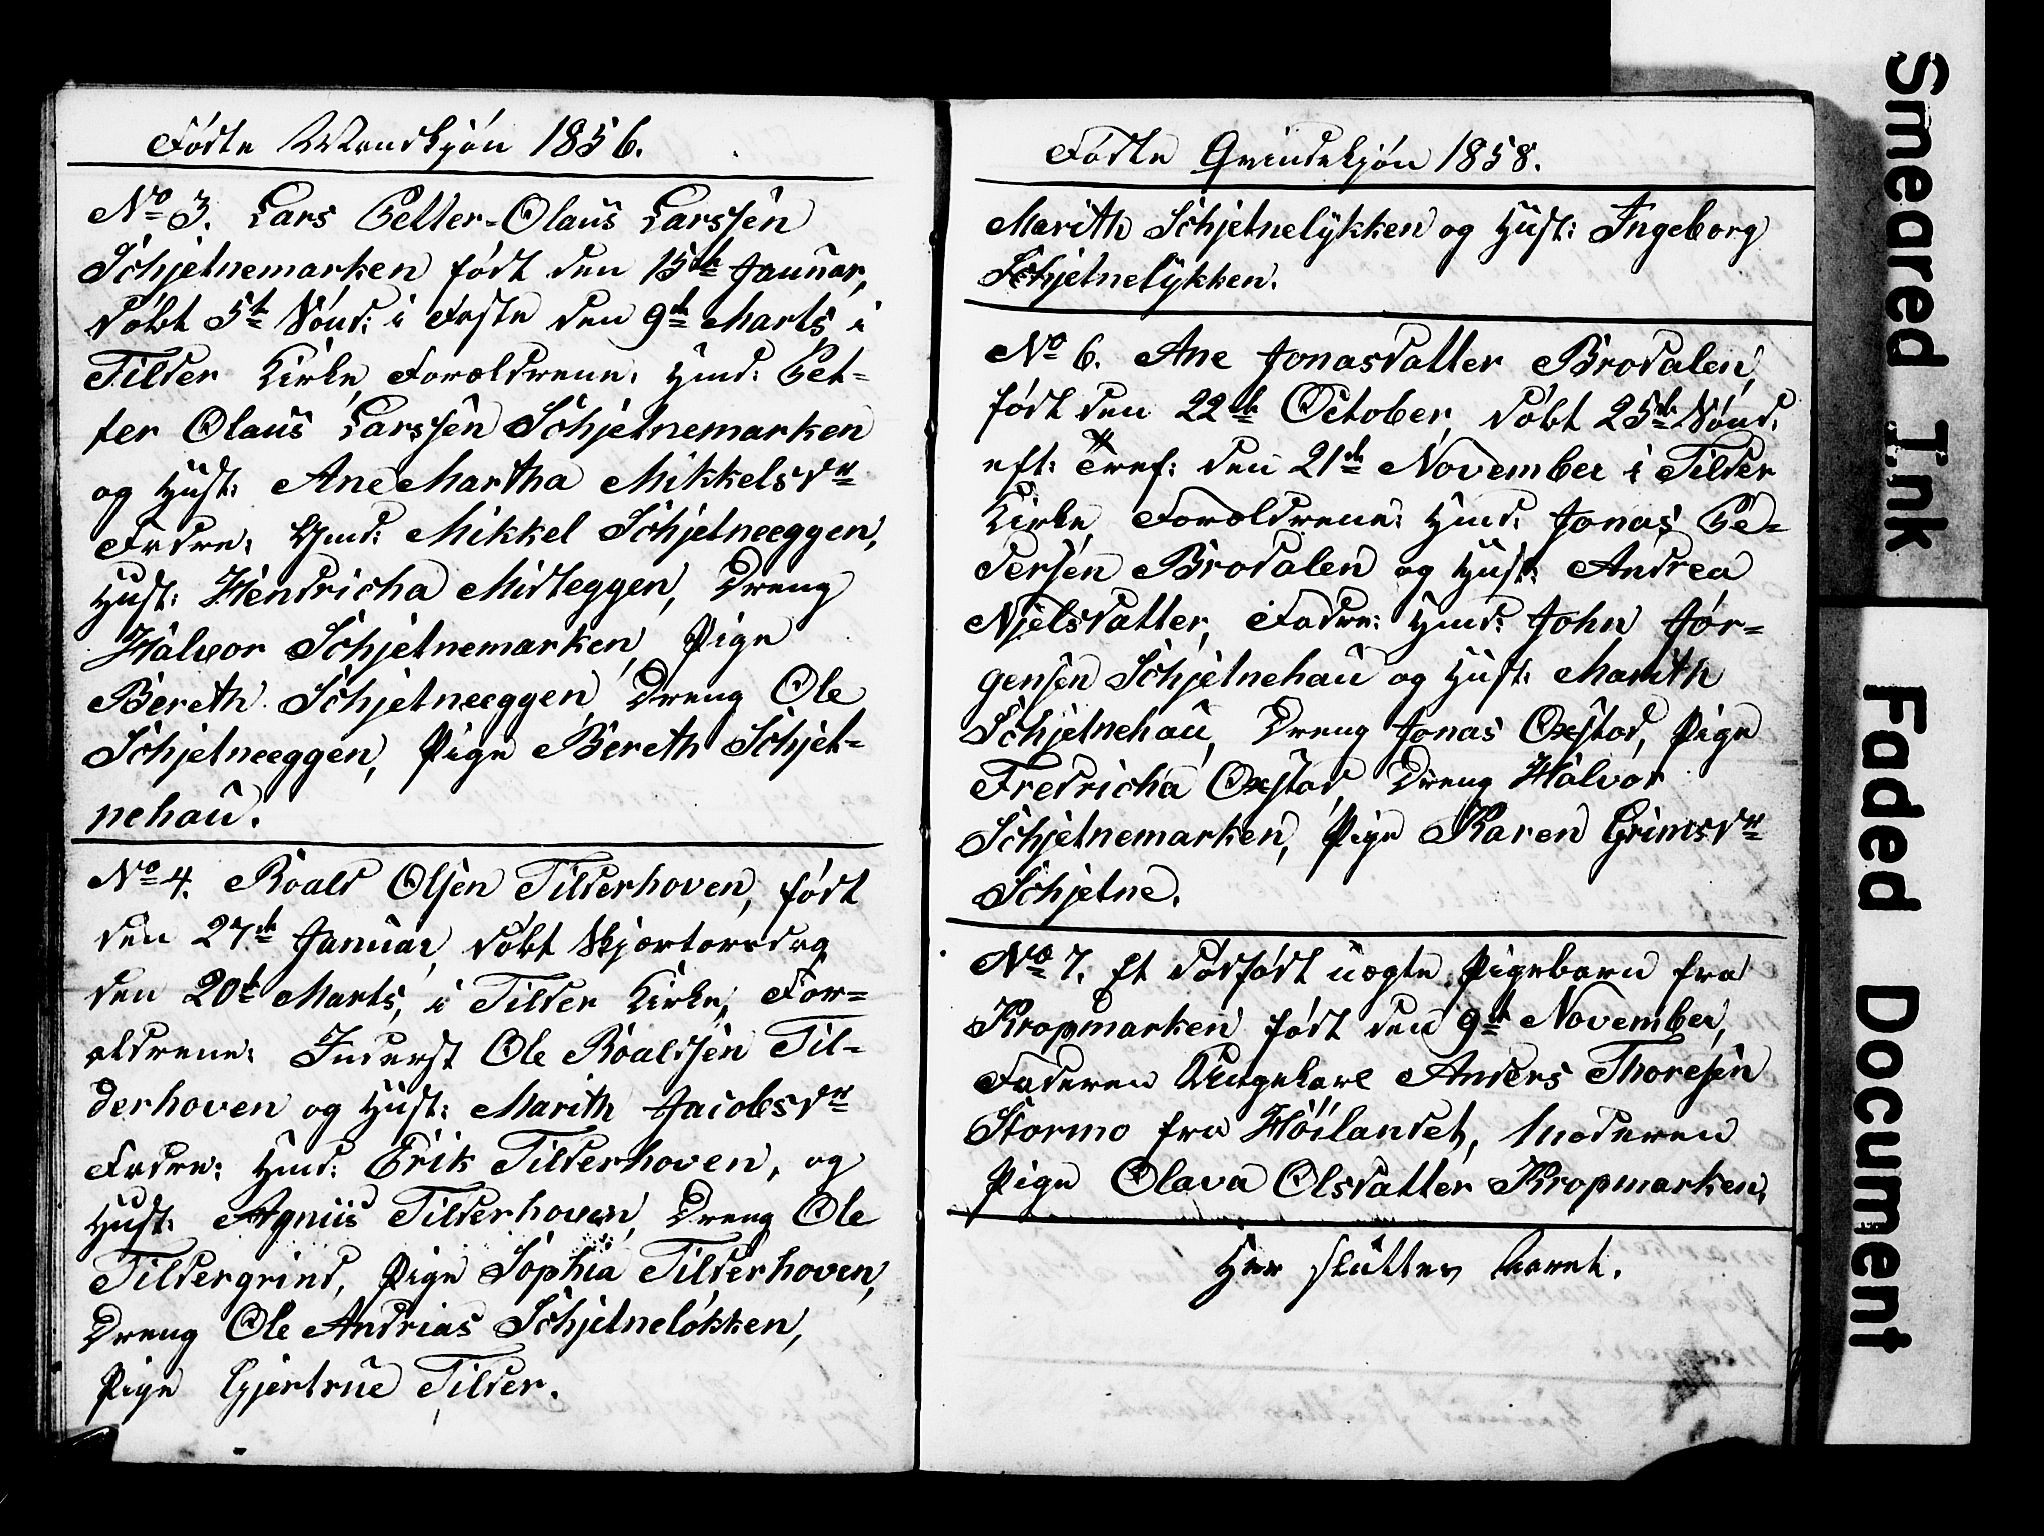 Födte Mandkjön 1856.
No 3. Lars Petter-Olaus Larssen
Schjetnemarken födt den 15de Januar,
döbt 5te Sönd: i Faste den 9de Marts i
Tilder Kirke, Forældrene: Hmd: Pet-
ter Olaus Larssen Schjetnemarken
og Hust: Ane Martha Mikkelsdr
Fadre: Hmd: Mikkel Schjetneeggen,
Hust: Hendricha Midteggen, Dreng
Halvor Schjetnemarken, Pige
Bereth Schjetneeggen, Dreng Ole
Schjetneeggen, Pige Bereth Schjet-
nehau.
No 4. Roald Olsen Tilderhoven, födt
den 27de Januar, döbt Skjærtorsdag
den 20de Marts, i Tilder Kirke, For-
ældrene: Inderst Ole Roaldsen Til-
derhoven og Hust: Marith Jacobsdr
Fadre: Hmd: Erik Tilderhoven, og
Hust: Agniis Tilderhoven, Dreng Ole
Tildergrind, Pige Sophia Tilderhoven,
Dreng Ole Andrias Schjetnelökken,
Pige Gjertrue Tilder.
Födte Qvindekjön 1858.
Marith Schjetnelykken og Hust: Ingeborg
Schjetnelykken.
No 6. Ane Jonasdatter Brodalen,
födt den 22de October, döbt 25de Sönd.
eft: Tref: den 21de November i Tilder
Kirke, Forældrene: Hmd: Jonas Pe-
dersen Brodalen og Hust: Andrea
Njelsdatter, Fadre: Hmd: John Jör-
gensen Schjetnehau og Hust: Marith
Schjetnehau, Dreng Jonas Oxstad, Pige
Fredricha Oxstad, Dreng Halvor
Schjetnemarken, Pige Karen Grimsdr
Schjetne.
No 7. Et dödfödt uægte Pigebarn fra
Kropmarken födt den 9de November,
Faderen Ungekarl Anders Thoresen
Stormo fra Höilandet, Moderen
Pige Olava Olsdatter Kropmarken.
Her slutter Aaret.
Smeared Ink
Faded Document